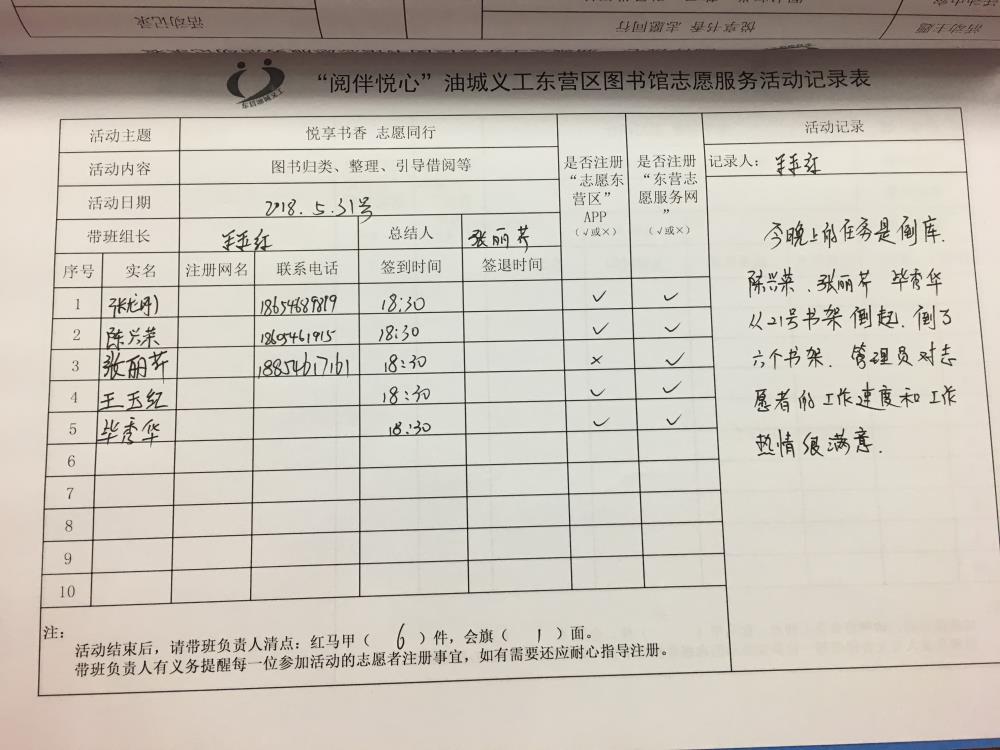 活动记录
悦享书香 志愿同行
活动主题
“阅伴悦心”油城义工东营区图书馆志愿服务活动记录表
活动主题 悦享书香 志愿同行
活动内容 图书归类、整理、引导借阅等
活动日期 2018.5.31号
带班组长 总结人 张丽芹
是否注册“志愿东营区”APP（√或×）
是否注册“东营志愿服务网”（√或×）
序号 实名 注册网名 联系电话 签到时间 签退时间
1 18654689819 18:30 √ √
2 陈兴荣 18605461915 18:30 √ √
3 张丽芹 18854617161 18:30 × √
4 王玉红 18:30 √ √
5 毕秀华 18:30 √ √
6
7
8
9
10
活动记录
记录人：
今晚上的任务是倒库.
陈兴荣、张丽芹 毕秀华
从21号书架倒起.倒了
六个书架.管理员对志
愿者的工作速度和工作
热情很满意.
注：
活动结束后，请带班负责人清点：红马甲（ 6 ）件，会旗（ 1 ）面。
带班负责人有义务提醒每一位参加活动的志愿者注册事宜，如有需要还应耐心指导注册。